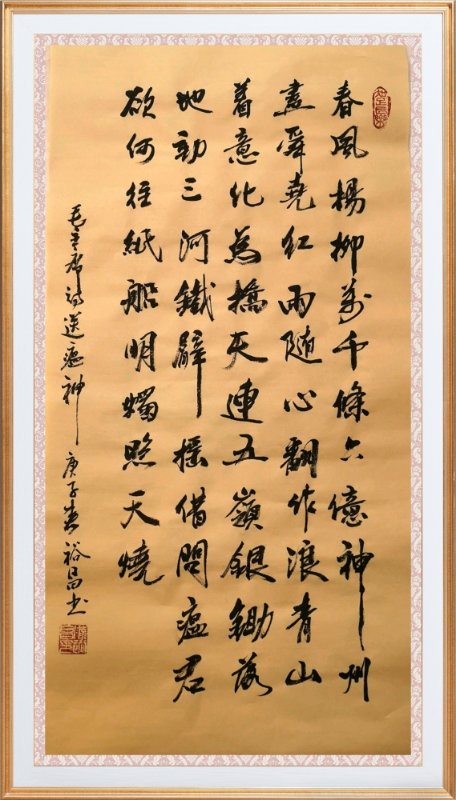 春風楊柳萬千條六億神州
盡舜堯紅雨隨心翻作浪青山
着意化為橋天連五嶺銀鋤落
地動三河鐵臂搖借問瘟君
欲何往紙船明燭照天燒
毛主席詩送瘟神 庚子春裕昌书